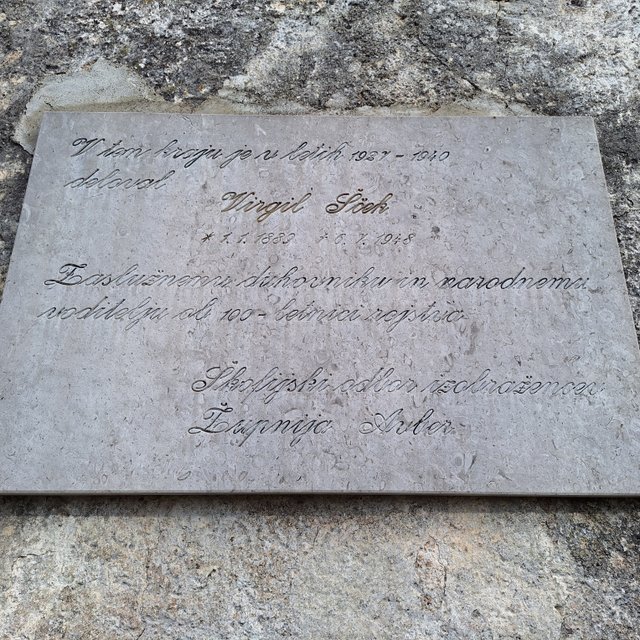 V tem kraju je v letih 1927 - 1940
deloval
Virgil Šček
* 1. 1. 1889 + 6. 7. 1948
Zaslužnemu duhovniku in narodnemu
voditelju ob 100-letnici rojstva.
Škofijski odbor izobražencev
Župnija Avber